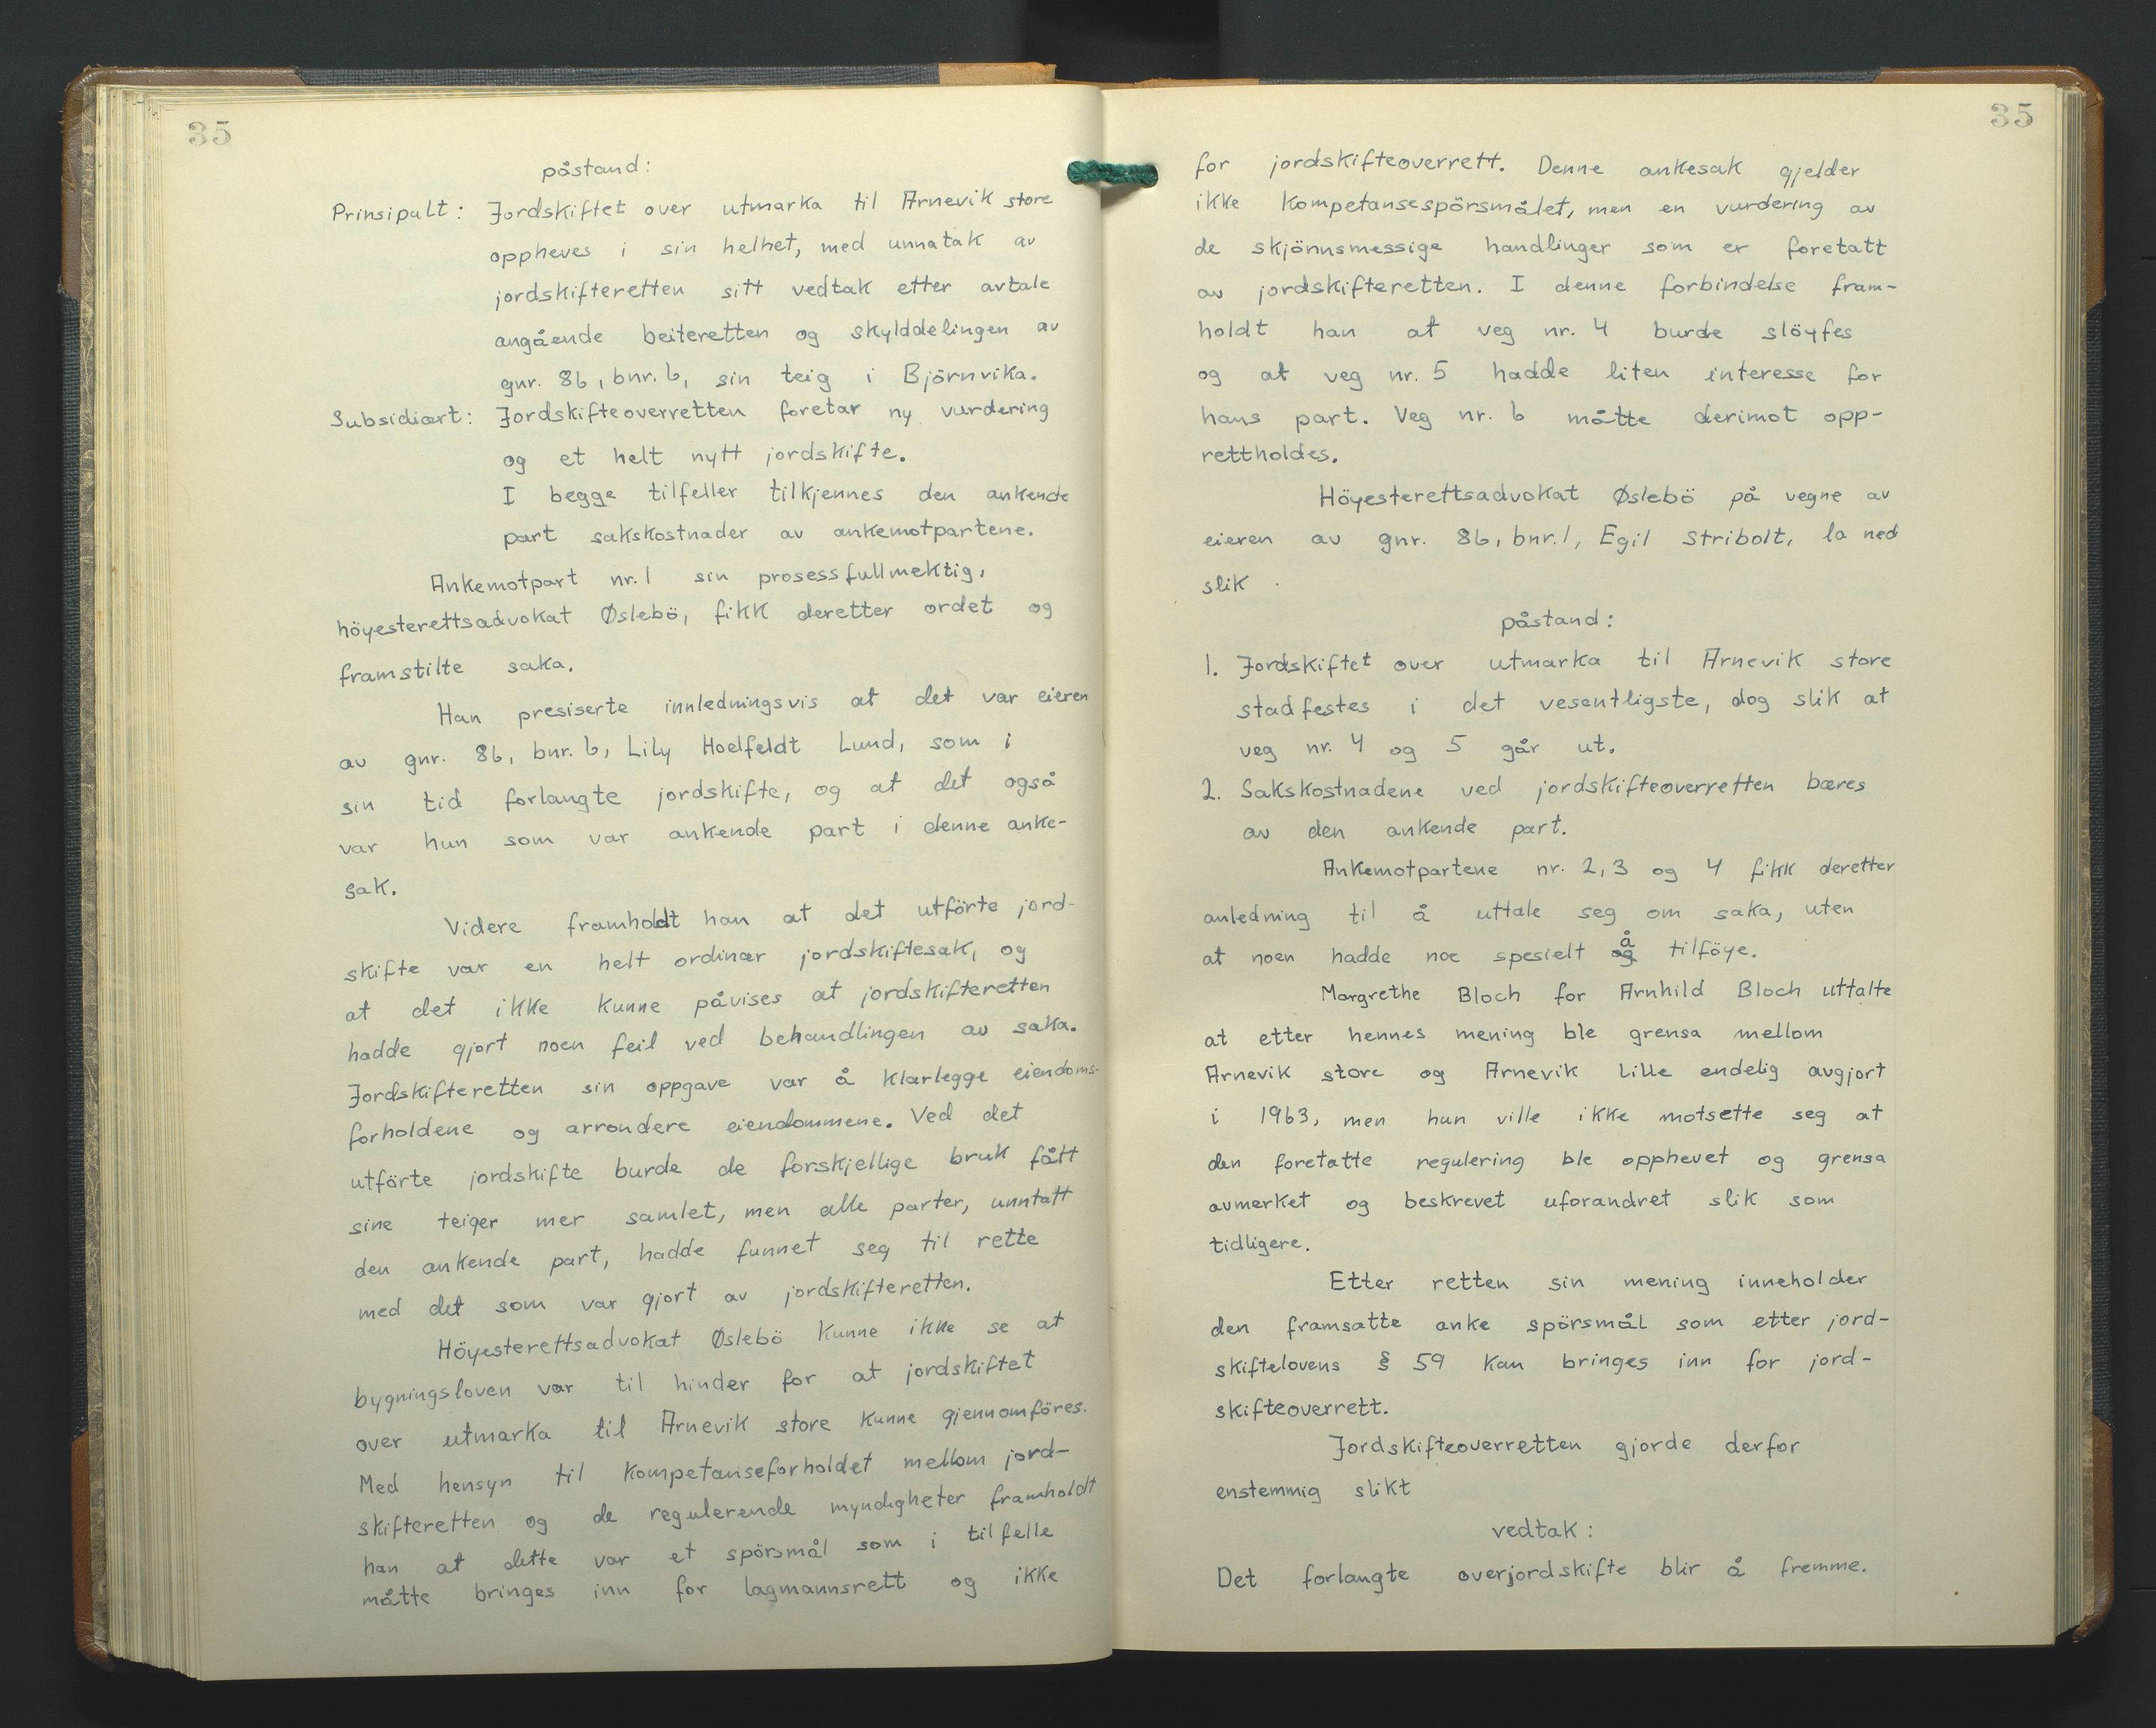 35
påstand:
Prinsipalt: Jordskiftet over utmarka til Arnevik store
oppheves i sin helhet, med unnatak av
jordskifteretten sitt vedtak etter avtale
angående beiteretten og skylddelingen av
gnr. 86, bnr. 6, sin teig i Björnvika.
Subsidiært: Jordskifteoverretten foretar ny vurdering
og et helt nytt jordskifte.
I begge tilfeller tilkjennes den ankende
part sakskostnader av ankemotpartene.
Ankemotpart nr. 1 sin prosessfullmektig,
höyesterettsadvokat Øslebö, fikk deretter ordet og
framstilte saka.
Han presiserte innledningsvis at det var eieren
av gnr. 86, bnr. 6, Lily Hoelfeldt Lund, som i
sin tid forlangte jordskifte, og at det også
var hun som var ankende part i denne anke-
sak.
Videre framholdt han at det utförte jord-
skifte var en helt ordinær jordskiftesak, og
at det ikke kunne påvises at jordskifteretten
hadde gjort noen feil ved behandlingen av saka.
Jordskifteretten sin oppgave var å klarlegge eiendoms-
forholdene og arrondere eiendommene. Ved det
utförte jordskifte burde de forskjellige bruk fått
sine teiger mer samlet, men alle parter, unntatt
den ankende part, hadde funnet seg til rette
med det som var gjort av jordskifteretten.
Höyesterettsadvokat Øslebö kunne ikke se at
bygningsloven var til hinder for at jordskiftet
over utmarka til Arnevik store kunne gjennomföres.
Med hensyn til kompetanseforholdet mellom jord-
skifteretten og de regulerende myndigheter framholdt
han at dette var et spörsmål som i tilfelle
måtte bringes inn for lagmannsrett og ikke
35
for jordskifteoverrett. Denne ankesak gjelder
ikke kompetansespörsmålet, men en vurdering av
de skjönnsmessige handlinger som er foretatt
av jordskifteretten. I denne forbindelse fram-
holdt han at veg nr. 4 burde slöyfes
og at veg nr. 5 hadde liten interesse for
hans part. Veg nr. 6 måtte derimot opp-
rettholdes.
Höyesterettsadvokat Øslebö på vegne av
eieren av gnr. 86, bnr. 1, Egil Stribolt, la ned
slik
påstand:
1. Jordskiftet over utmarka til Arnevik store
stadfestes i det vesentligste, dog slik at
veg nr. 4 og 5 går ut.
2. Sakskostnadene ved jordskifteoverretten bæres
av den ankende part.
Ankemotpartene nr. 2, 3 og 4 fikk deretter
anledning til å uttale seg om saka, uten
at noen hadde noe spesielt og å tilföye.
Margrethe Bloch for Arnhild Bloch uttalte
at etter hennes mening ble grensa mellom
Arnevik store og Arnevik lille endelig avgjort
i 1963, men hun ville ikke motsette seg at
den foretatte regulering ble opphevet og grensa
avmerket og beskrevet uforandret slik som
tidligere.
Etter retten sin mening inneholder
den framsatte anke spörsmål som etter jord-
skiftelovens § 59 kan bringes inn for jord-
skifteoverrett.
Jordskifteoverretten gjorde derfor
enstemmig slikt
vedtak:
Det forlangte overjordskifte blir å fremme.